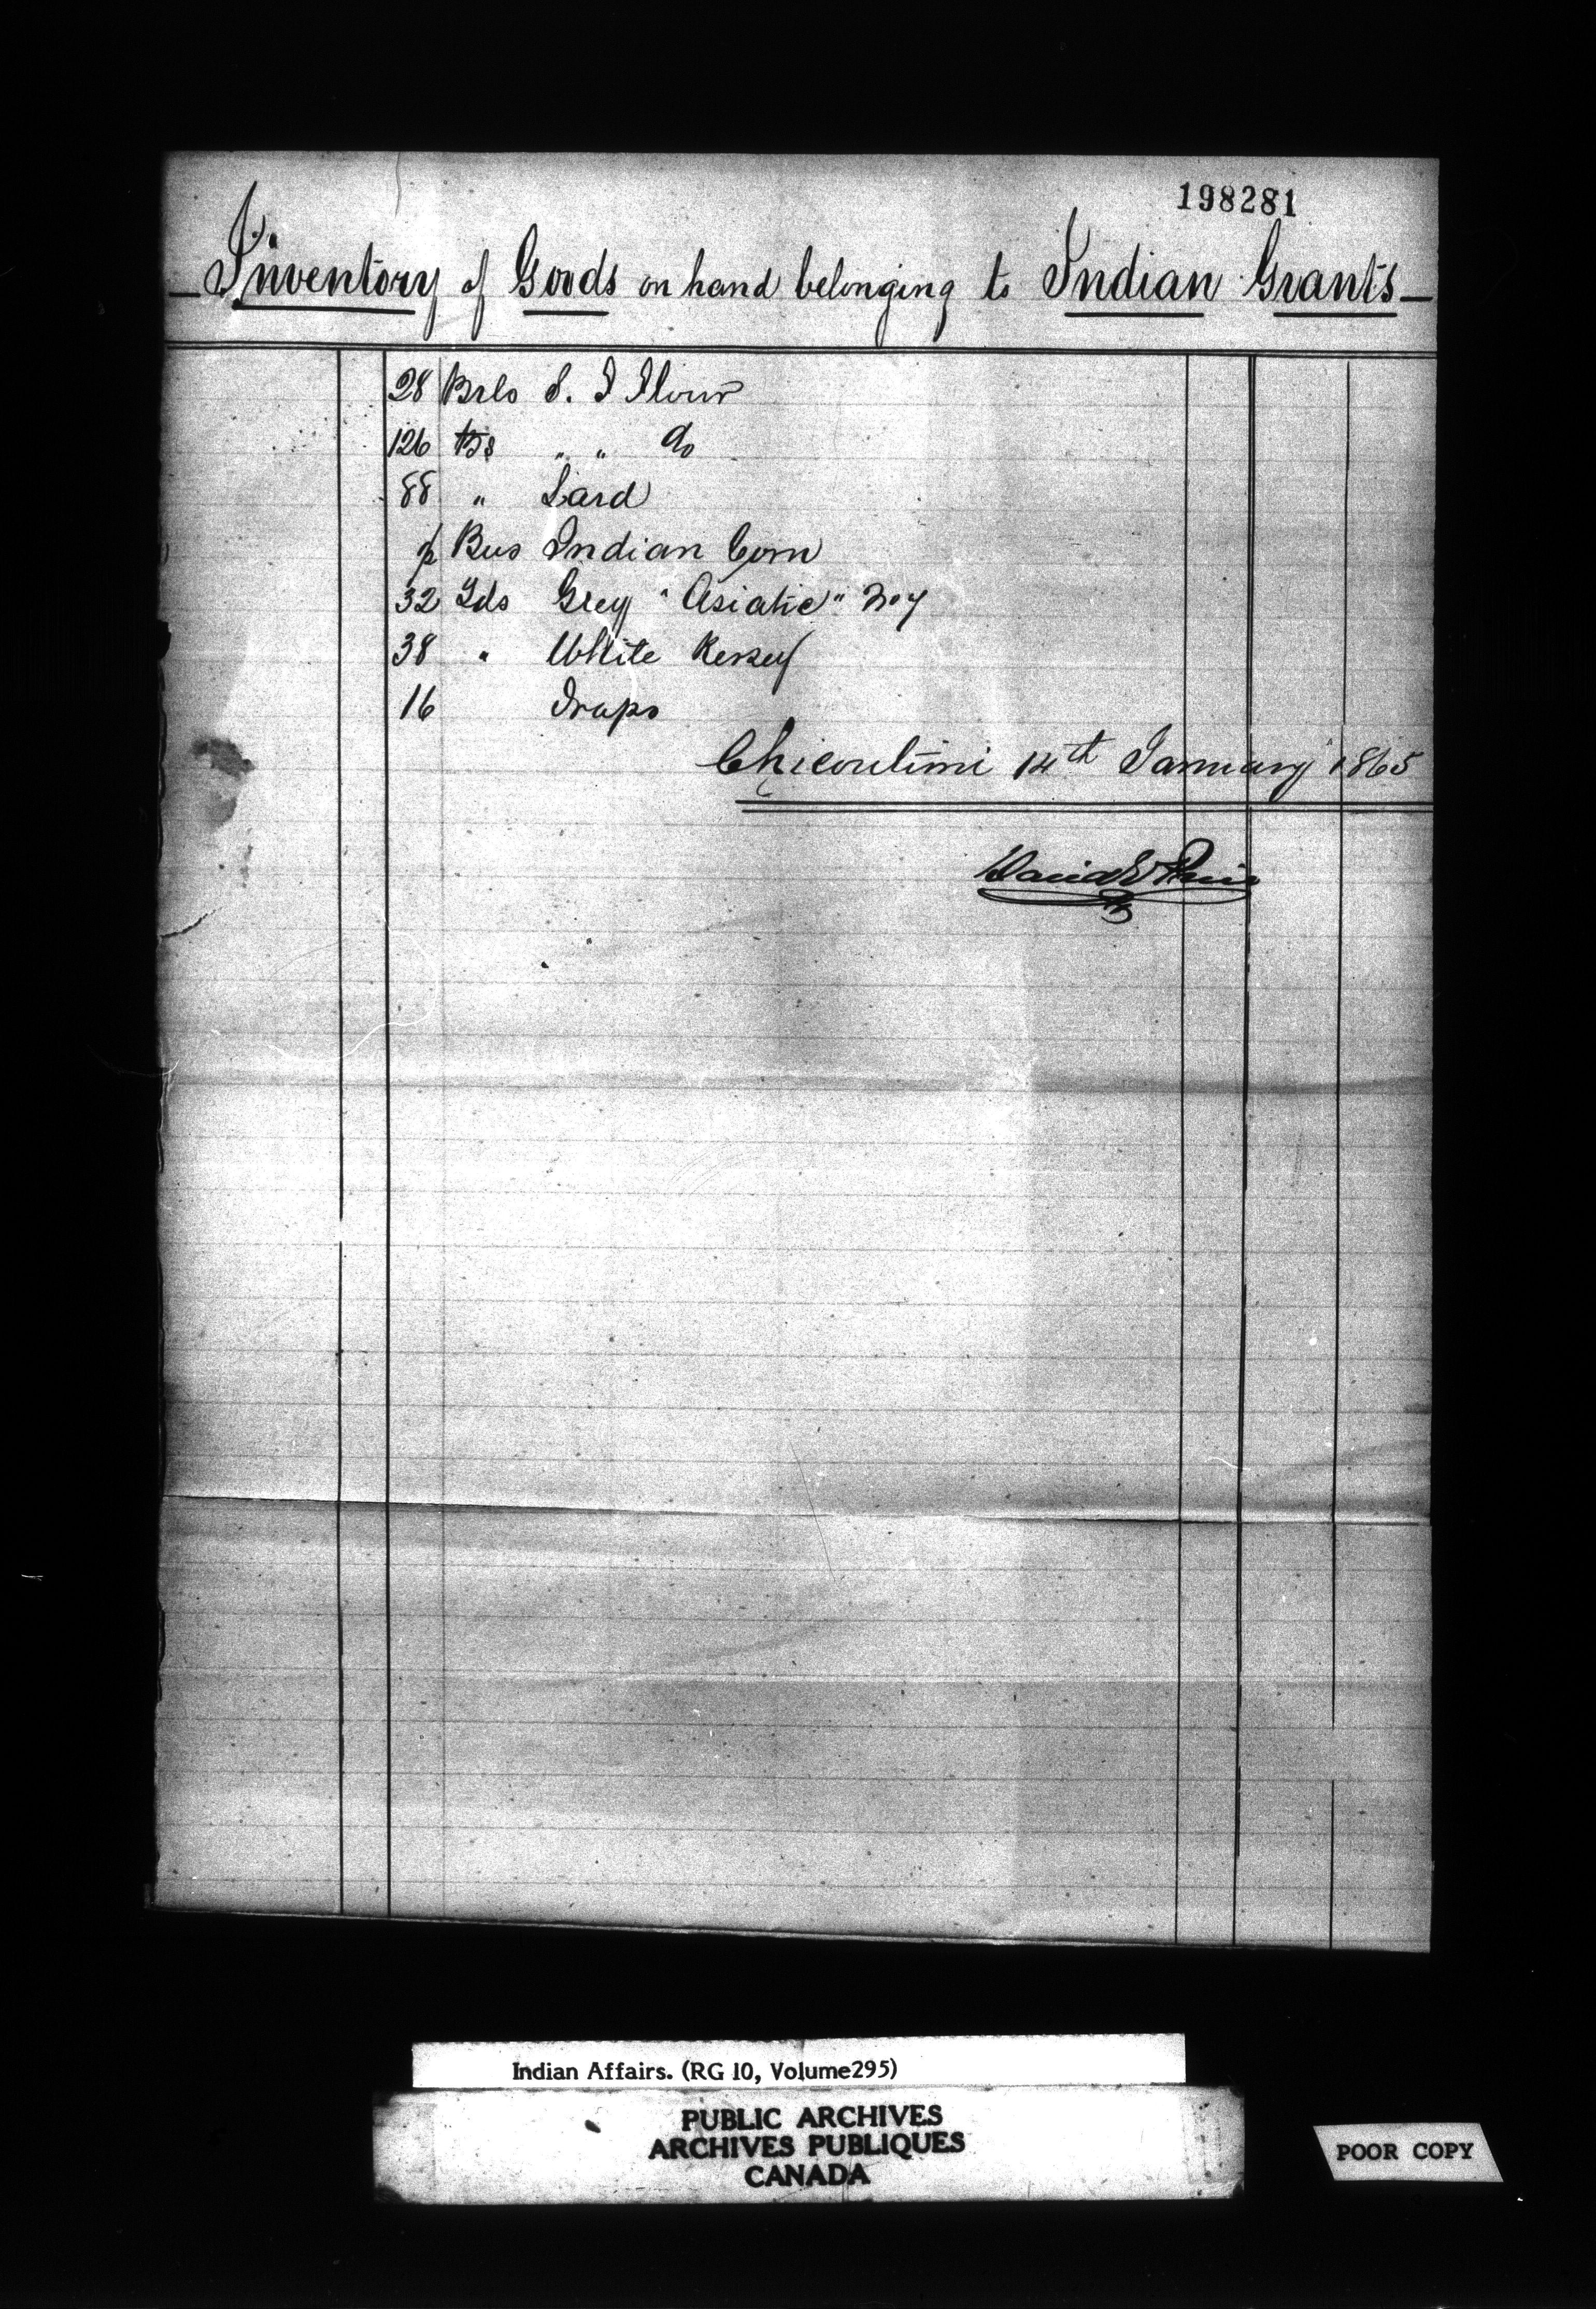 198281
Inventory of Goods on hand belonging to Indian Grants
28 Brls S. I Flour
126 lbs " " Do
88 " Lard
Bus Indian Corn
32 Yds Grey "Asiatic"
38 " White Kersey
16 Traps
Chicoutimi 14th January 1865
David E Price
Indian Affairs. (RG 10, Volume295)
PUBLIC ARCHIVES
ARCHIVES PUBLIQUES
CANADA
POOR COPY